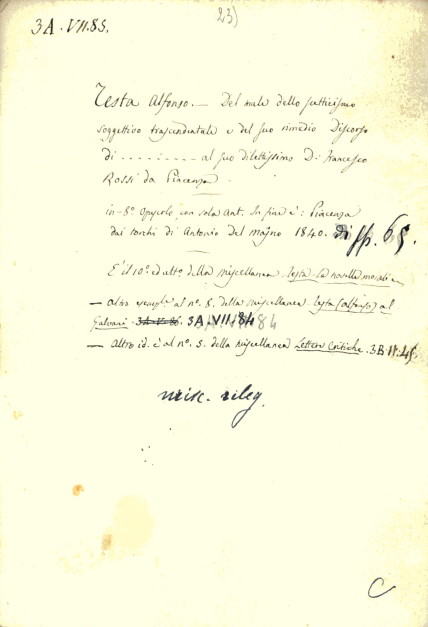 23)
3A. VII. 85.
Testa Alfonso. — Del male dello scetticismo
soggettivo trascendentale e del suo rimedio Discorso
di .......... al suo dilettissimo D. Francesco
Rossi da Piacenza.
in-8° Opuscolo con sola Ant. In fine è: Piacenza
dai torchi di Antonio del Majno 1840. di pp. 65.
È il 10° ed ult° della Miscellanea Testa le novelle morali
— Altro esempl. è al n°. 8. della Miscellanea Testa (Alfonso) al
Galvani. 3A.V.86. 3A.VII.84
— Altro id. è al n°. 5. della Miscellanea Lettere Critiche. 3B.II.45.
misc. rileg.
C